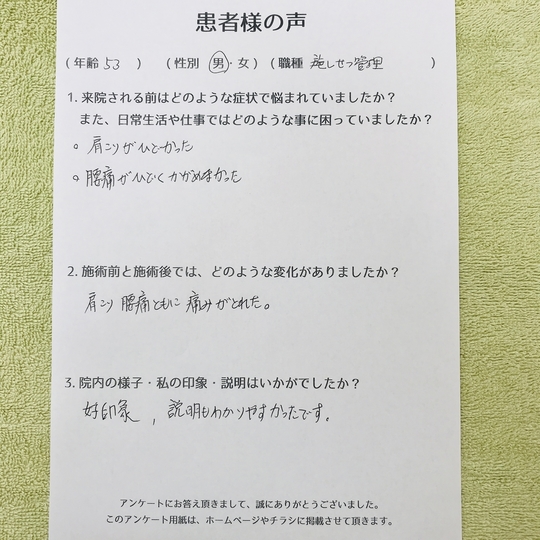 患者様の声
(年齢 53 ) (性別 男・女) (職種 施しせつ管理 )
1. 来院される前はどのような症状で悩まれていましたか?
また、日常生活や仕事ではどのような事に困っていましたか?
○ 肩こりがひどかった
○ 腰痛がひどくかがめなかった
2. 施術前と施術後では、どのような変化がありましたか?
肩こり 腰痛ともに 痛みがとれた。
3. 院内の様子・私の印象・説明はいかがでしたか?
好印象 , 説明もわかりやすかったです。
アンケートにお答え頂きまして、誠にありがとうございました。
このアンケート用紙は、ホームページやチラシに掲載させて頂きます。